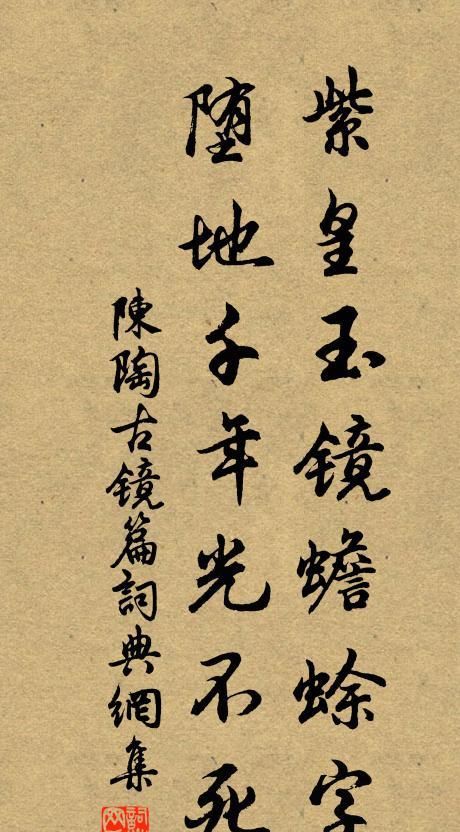 紫皇玉镜蟾蜍字
堕地千年光不死
陳陶古镜篇詞典網集